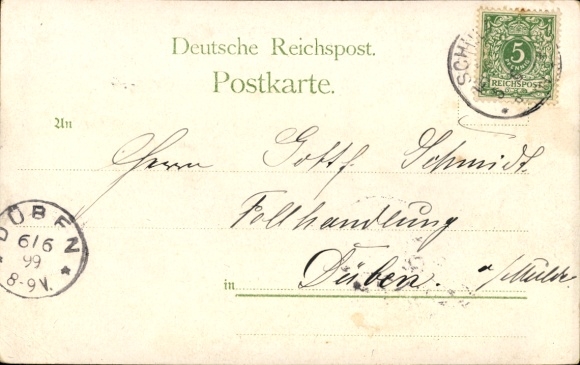 Deutsche Reichspost.
Postkarte.
5
PFENNIG
REICHSPOST
SCH
An
Herrn Gottf. Schmidt.
Fellhandlung
in Düben. a/Mulde.
DÜBEN
6/6
99
8-9V.